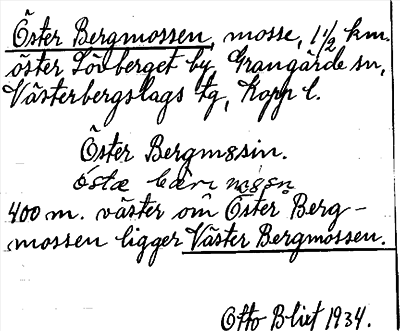 Öster Bergmossen, mosse, 1 1/2 km.
öster Lövberget by Grangärde sn,
Västerbergslags tg, Kopp l.
Öster Bergmssin.
400 m. väster om Öster Berg-
mossen ligger Väster Bergmossen.
Otto Blixt 1934.